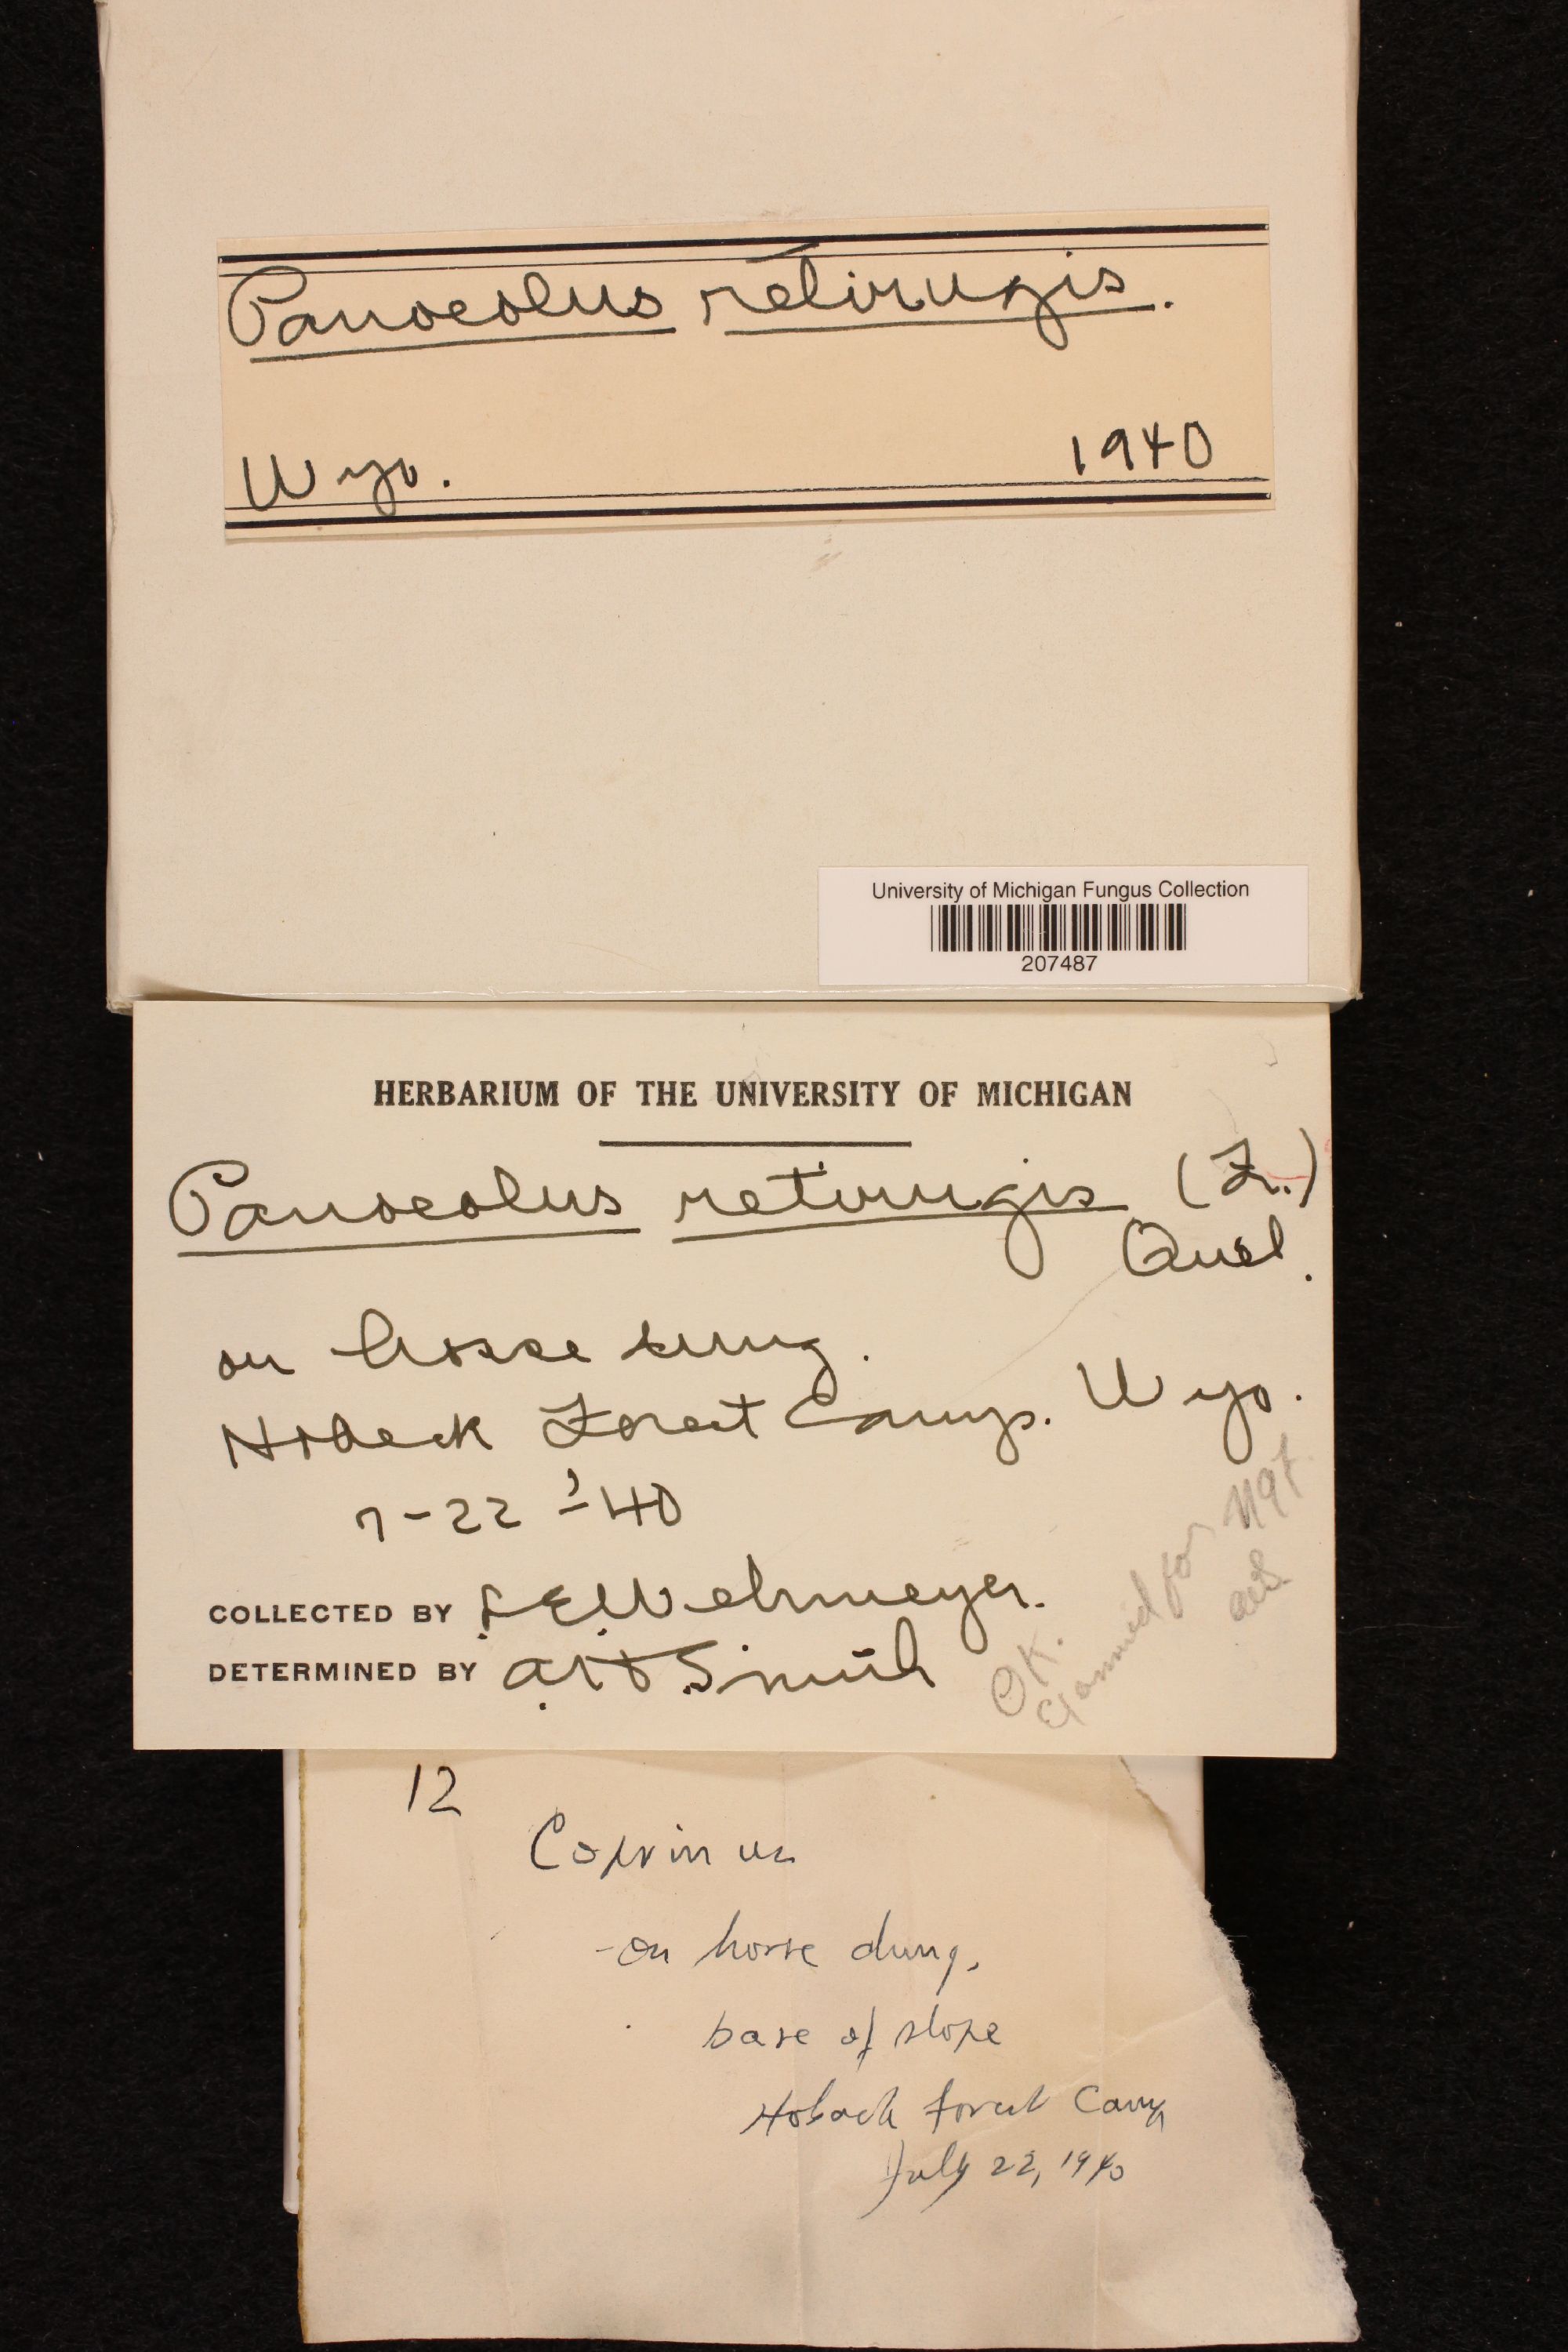 Panaeolus retirugis.
Wyo. 1940
University of Michigan Fungus Collection
207487
HERBARIUM OF THE UNIVERSITY OF MICHIGAN
Panaeolus retirugis (Fr.)
Quél.
on horse dung.
Hoback Forest Camp. Wyo.
7-22-'40
COLLECTED BY L E Wehmeyer.
DETERMINED BY A H Smith
OK.
Examined for
AHS
12
Coprinus
-on horse dung.
base of slope
Hoback Forest Camp
July 22, 1940